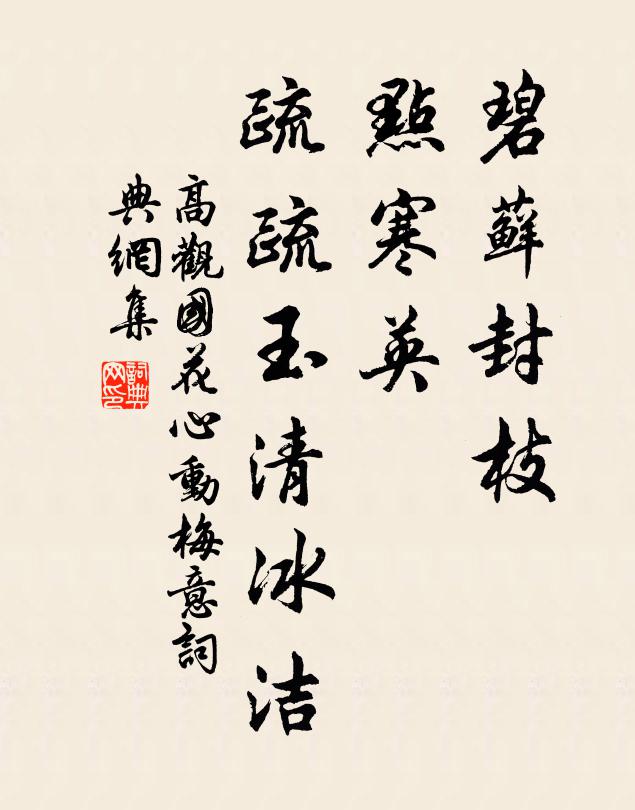 碧蘚封枝
點寒英
疏疏玉清冰洁
高觀國花心動梅意詞
典網集
詞典网印